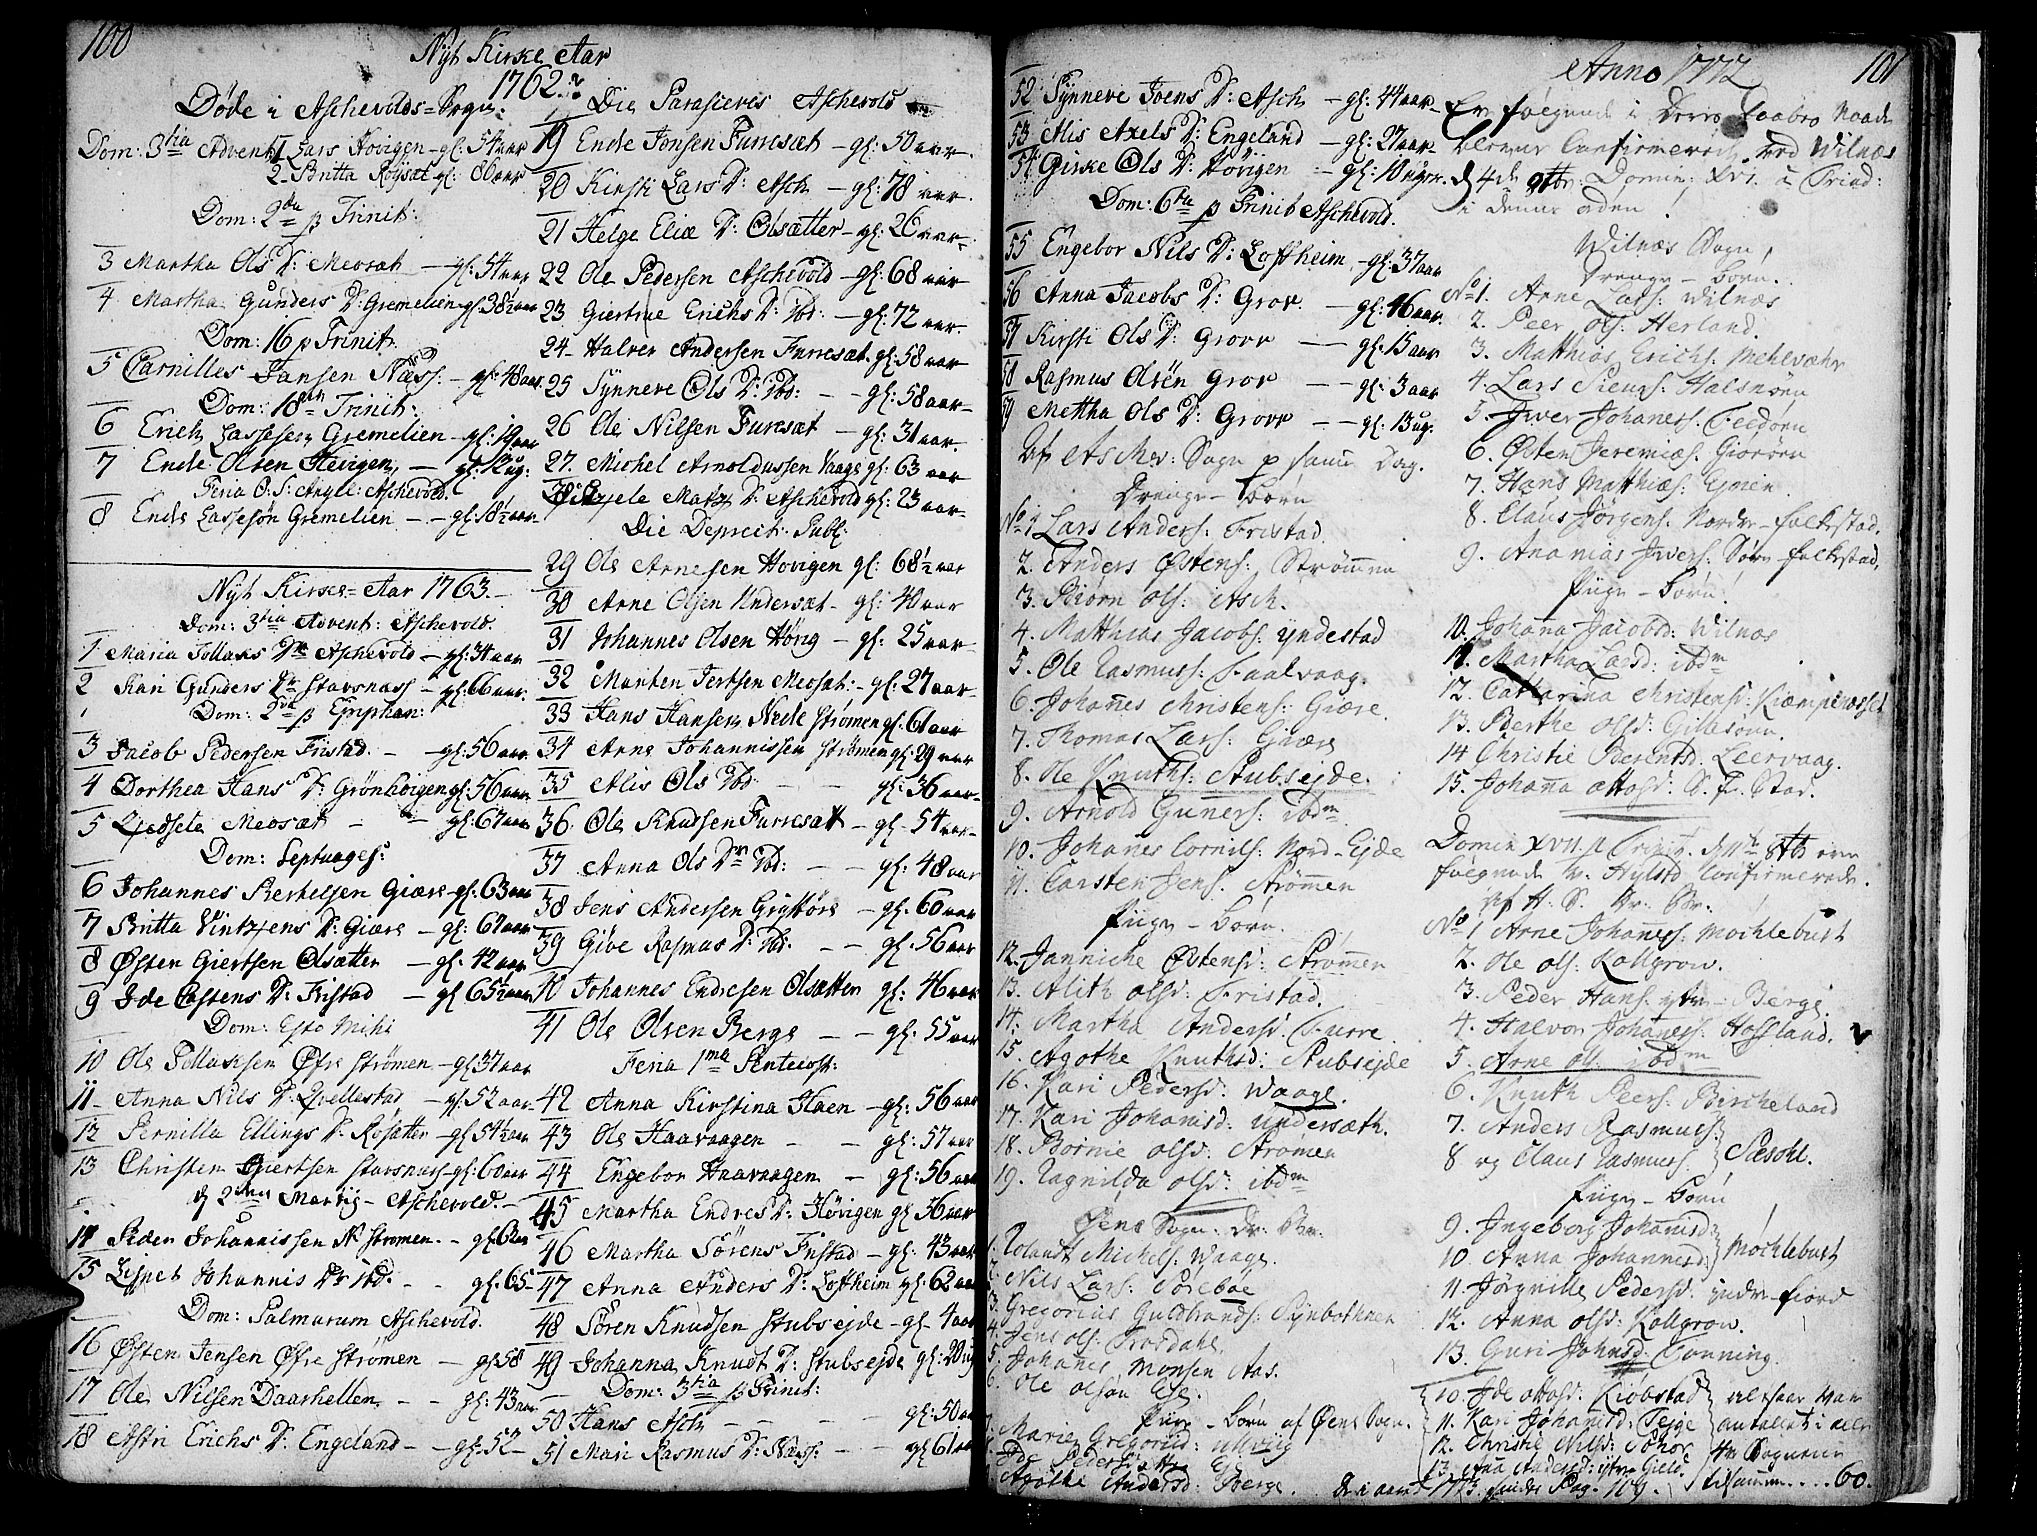 100
Nyt Kirke Aar
1762
Døde i Aschevolds Sogn:
Dom: 3tia Advent 1 Lars Hovigen gl: 54 aar
2 Britta Røysæt gl: 86 aar
Dom: 2da p Trinit:
3 Martha Ols D: Meosæt gl: 54 aar
4 Martha Gunders D: Gremelien gl: 38½ aar
Dom: 16 p Trinit:
5 Carnilles Jansen Næss gl: 48 aar
Dom: 18de Trinit:
6 Erich Lassesen Gremelien gl: 19 aar
7 Ende Olsen Hevigen gl: 12 ug:
Feria O: S: Angl: Aschevold.
8 Ende Lassesøn Gremelien gl: 18½ aar
Nyt Kirke Aar 1763.
Dom: 3tia Advent: Aschevold.
1 Maria Tollaks Dtr Aschevold gl: 34 aar
2 Kari Gunders Dtr Stavsnæss gl: 66 aar
Dom: 2da p Epiphan:
3 Jacob Pedersen Fristad gl: 56 aar
4 Dorthea Hans D: Grønhøigen gl: 56 aar
5 Meosæt gl: 67 aar
Dom: Septuages:
6 Johannes Kerhelsen Giære gl: 63 aar
7 Britta Vintzens D: Giære gl: 67 aar
8 Østen Giertsen Olsætter gl: 42 aar
9 Ide Castens D: Fristad gl: 65½ aar
Dom: Esto Mihi
10 Ole Tollaksen Øfre Strømen gl: 37 aar
11 Anna Nils D: Qvellestad gl: 52 aar
12 Pernilla Ellings D: Rosætter gl: 54½ aar
13 Christen Giertsen Stavsnæss gl: 60 aar
d 2den Martij Aschevold.
14 Peder Johannissen N Strømen
15 Lispet Johannis Dr ibd. gl: 65
Dom: Palmarum Aschevold.
16 Østen Jensen Øfre Strømen gl: 58
17 Ole Nilsen Daarhellen gl: 43 aar
18 Astri Erichs D: Engeland gl: 52
Die Parasceves Aschevold
19 Ende Jonsen Furresæt gl: 50 aar
20 Kirsti Lars D: Asch gl: 78 aar
21 Helge Eliæ D: Olsætter gl: 26 aar
22 Ole Pedersen Aschevold gl: 68 aar
23 Giertrue Erichs D: Ibd: gl: 72 aar
24 Halver Andersen Furresæt gl: 58 aar
25 Synneve Ols D: Ibd: gl: 58 aar
26 Ole Nilsen Furresæt gl: 31 aar
27 Michel Arnoldussen Vaage gl: 63 aar
28 Matz D: Aschevold gl: 23 aar
Die Deprecit: Publ:
29 Ole Arnesen Hovigen gl: 68½ aar
30 Arne Olsen Undersæt gl: 40 aar
31 Johannes Olsen Høvig gl: 25 aar
32 Marten Jertsen Meosæt gl: 27 aar
33 Hans Hansen Nede Strømen gl: 61 aar
34 Arne Johannissen Strømen gl: 29 aar
35 Alis Ols Ibd gl: 36 aar
36 Ole Knudsen Furresæt gl: 54 aar
37 Anna Ols Dtr Ibd: gl: 48 aar
38 Jens Andersen Grytøre gl: 60 aar
39 Giøe Rasmus D: Ibd: gl: 56 aar
40 Johannes Endresen Olsætter gl: 46 aar
41 Ole Olsen Berge gl: 55 aar
Feria 1ma Pentecost:
42 Anna Kirstina Haen gl: 56 aar
43 Ole Haavaagen gl: 57 aar
44 Engebor Haavaagen gl: 56 aar
45 Martha Endres D: Høvigen gl: 36 aar
46 Martha Sørens Fristad gl: 43 aar
47 Anna Anders D: Loftheim gl: 62 aar
48 Søren Knudsen Stubseyde gl: 4 aar
49 Johanna Knudt D: Stubseyde gl: 20 ug
Dom: 3tia p Trinit:
50 Hans Asch gl: 50 aar
51 Mari Rasmus D: Næss gl: 61 aar
52 Synneve Joens D: Asch gl: 44 aar
53 Alis Axels D: Engeland gl: 27 aar
54 Girske Ols D: Høvigen gl: 10 uger
Dom: 6ta p Trinit Aschevold.
55 Engebor Nils D: Loftheim gl: 37 aar
56 Anna Jacobs D: Grov gl: 46 aar
57 Kirsti Ols D: Grov gl: 15 aar
58 Rasmus Olsen Grov gl: 3 aar
59 Mettha Ols D: Grov gl: 13 ug.
Af Aschev: Sogn p samme Dag.
Drenge-Børn
No 1 Lars Anders: Fristad.
2. Anders Østens: Strømmen
3. Biørn Ols: Asch.
4. Matthias Jacobs: Yndestad
5. Ole Rasmuss: Faalvaag.
6. Johanes Christens: Giære.
7. Thomas Lars: Giære
8. Ole Knuths: Stubseyde.
9. Arnold Guners: ibdm
10. Johanes Cornils: Nord-Eyde
11. Carsten Jens: Strømmen
Piige-Børn.
12. Jannicke Østensd: Strømmen
13. Alith Olsd: Fristad.
14. Martha Andersd: Furre.
15. Agothe Knuthsd: Stubseyde
16. Kari Pedersd: Waage.
17. Kari Johansd: Undersæth.
18. Børnie Olsd: Strømen
19. Ragnilda Olsd: ibdm
Øens Sogn. Dr: Br.
1. Rolandt Michels: Waage.
2. Nils Lars: Sørebøe
3. Gregorius Guldbrands: Synbothnen
4. Jens Ols: Trosdahl.
5. Johanes Monsen Aas.
6. Ole Olsøn Eje.
Piige-Børn af Øens Sogn.
7. Marie Gregoriid: Ullviig
Ide Pedersd:
Agothe Andersd: Berge.
De i Aaret 1773 findes Pag. 109.
Anno 1772 101
Er følgende i Deres Daabes Naade
blevne Confirmerede ved Wilnæs
d 4de 8tbr: Domin: XVI. a Trinid:
i denne orden!
Wilnæs Sogn,
Drenge-Børn.
No 1. Arne Lars: Wilnæs
2. Peer Ols: Herland.
3. Matthias Erichs: Mehlvæhr
4. Lars Siurs: Halsnøen
5. Iwer Johanes: Feedøen
6. Østen Jeremiæs: Giørøen
7. Hans Matthiæs:
8. Claus Jørgens: Nordre-falkstad.
9. Ananias Iwers: Søre falkstad.
Piige-Børn!
10. Johana Jacobsd: Wilnæs
11. Martha Larsd: ibdm
12. Cattarina Christensd: Kiempenæsset
13. Berthe Olsd: Gillesøen.
14 Christie Berentsd: Leervaag.
15. Johanna Ottosd: S. F. Stad.
Domin XVII p Trinit. d 11te 8tb ere
følgende v. Hylstd Confirmerede.
af H. S. Dr. Br.
No 1 Arne Johanes: Mochlebust
2. Ole Ols: Kollgrow.
3. Peder Hans: ytre Berge.
4. Halvor Johanes: Hofland.
5. Arne Ols: ibdm
6. Knuth Peers: Bircheland
7. Anders Rasmuss:
8 og Claus Rasmuss: } Sæsohl.
Piige-Børn
9. Ingeborg Johanisd:
10. Anna Johannesd: } Mochlebust
11. Jørgnille Pedersd: indre-fiord
12. Anna Olsd: Kollgrow.
13. Guri Johnsd: Tonning.
10. Ide Ottosd: Kiøbstad
11. Kari Johansd: Teige
12. Christie Nilsd:
13. Ana Andersd: ytre
altsaa var
antallet i alle
4re Sogneene
tilsamm....60.